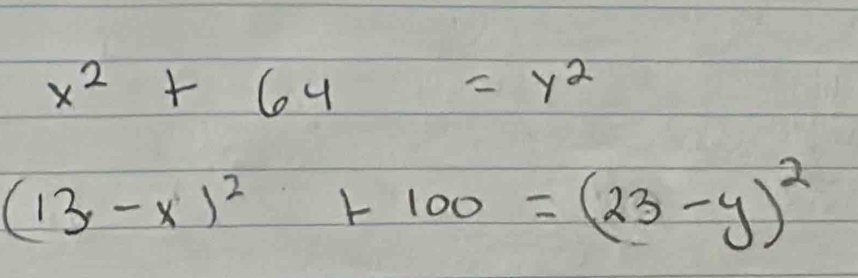 x² + 64 = y²
(13 - x)² + 100 = (23 - y)²